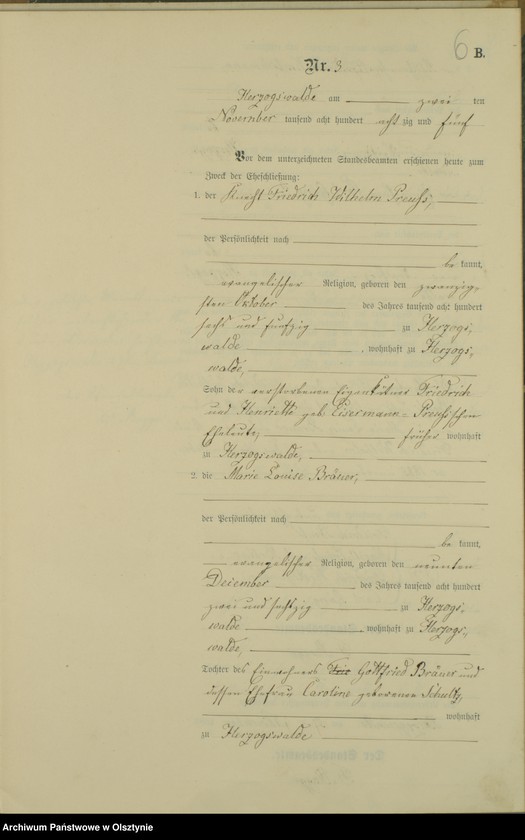 6 B.
Nr. 3
Herzogswalde am zwei ten
November tausend acht hundert acht zig und fünf
Vor dem unterzeichneten Standesbeamten erschienen heute zum
Zweck der Eheschließung:
1. der Knecht Friedrich Wilhelm Preuß,
der Persönlichkeit nach
be kannt,
evangelischer Religion, geboren den zwanzig-
sten Oktober des Jahres tausend acht hundert
sechs und fünfzig zu Herzogs-
walde, wohnhaft zu Herzogs-
walde,
Sohn der verstorbenen Eigenkätner Friedrich
und Henriette geb Eisermann-Preußschen
Eheleute, früher wohnhaft
zu Herzogswalde,
2. die Marie Louise Bräuer,
der Persönlichkeit nach
be kannt,
evangelischer Religion, geboren den neunten
Dezember des Jahres tausend acht hundert
zwei und sechzig zu Herzogs-
walde, wohnhaft zu Herzogs-
walde,
Tochter des Einwohners Gottfried Bräuer und
dessen Ehefrau Caroline geborenen Schultz,
wohnhaft
zu Herzogswalde
Archiwum Państwowe w Olsztynie